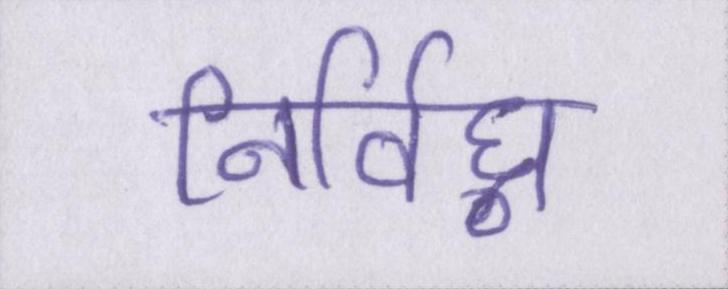 निर्विघ्न